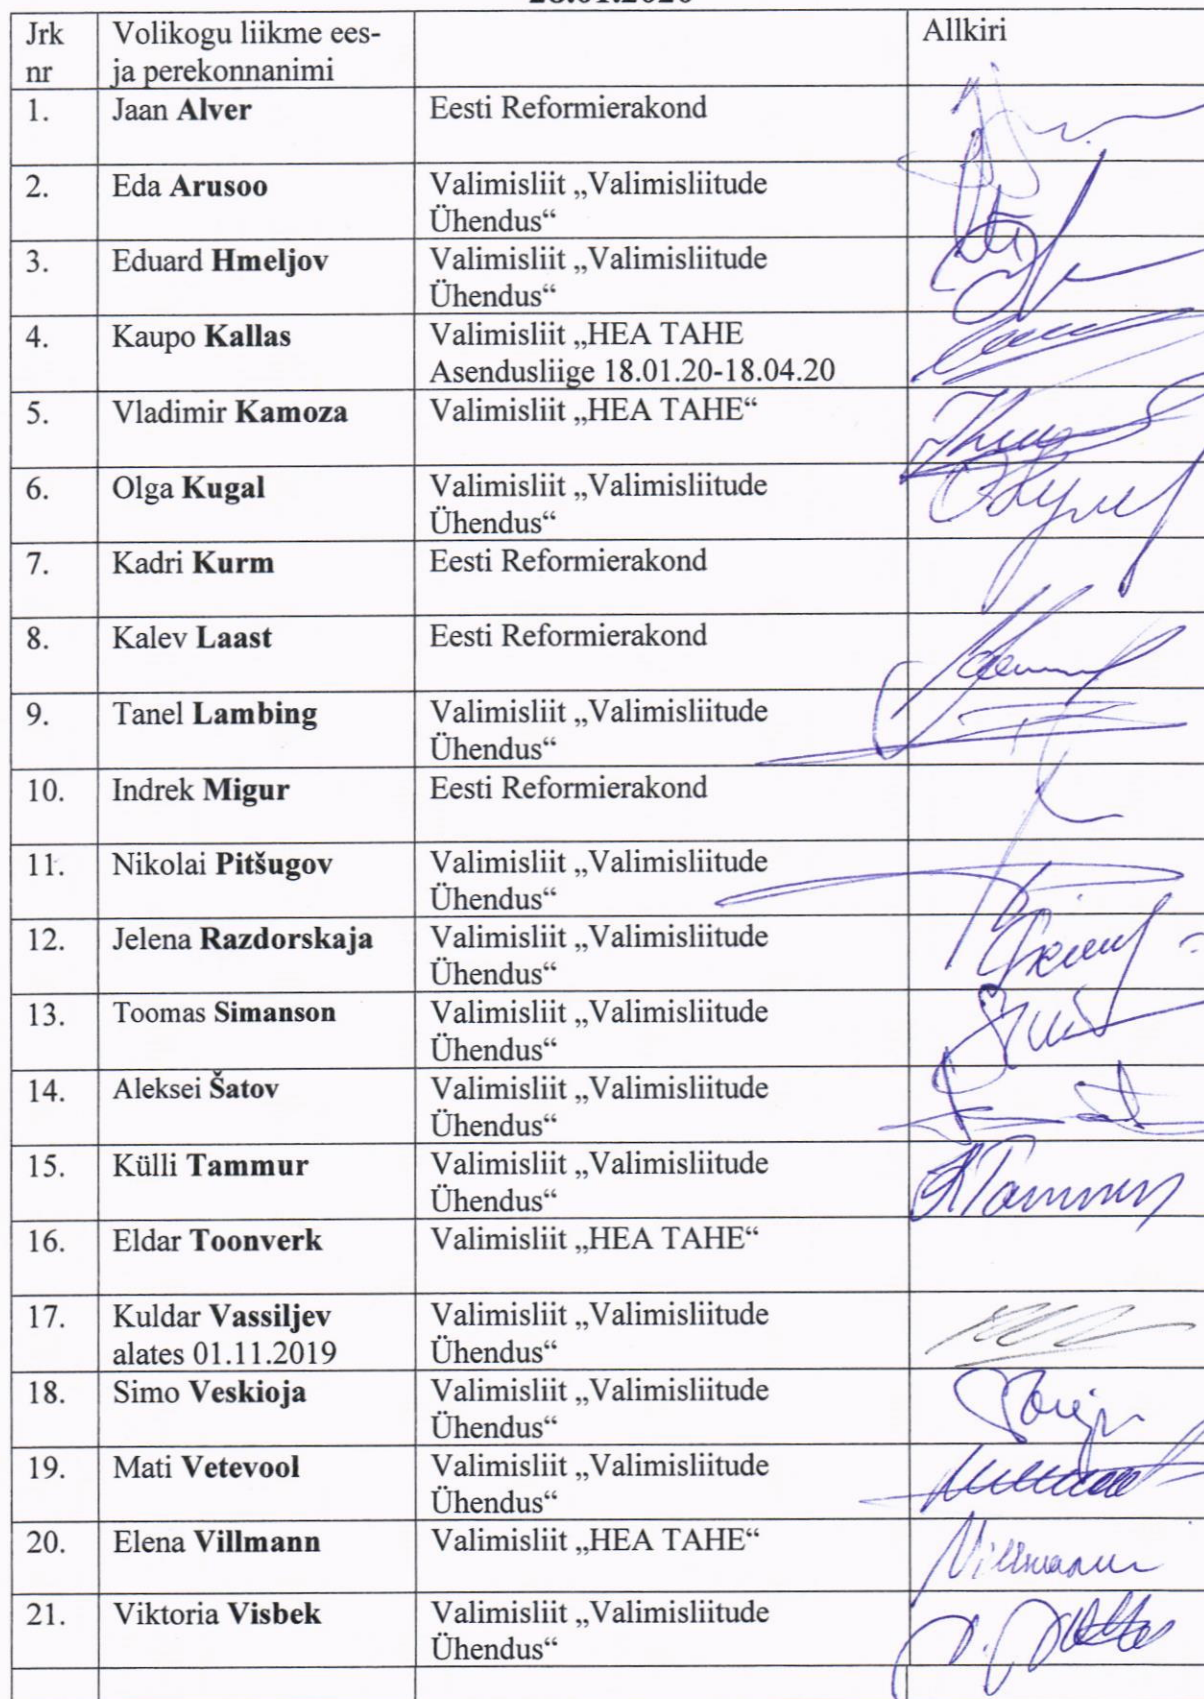 Jrk Volikogu liikme ees- Allkiri
nr ja perekonnanimi
1. Jaan Alver Eesti Reformierakond
2. Eda Arusoo Valimisliit „Valimisliitude
Ühendus“
3. Eduard Hmeljov Valimisliit „Valimisliitude
Ühendus“
4. Kaupo Kallas Valimisliit „HEA TAHE
Asendusliige 18.01.20-18.04.20
5. Vladimir Kamoza Valimisliit „HEA TAHE“
6. Olga Kugal Valimisliit „Valimisliitude
Ühendus“
7. Kadri Kurm Eesti Reformierakond
8. Kalev Laast Eesti Reformierakond
9. Tanel Lambing Valimisliit „Valimisliitude
Ühendus“
10. Indrek Migur Eesti Reformierakond
11. Nikolai Pitšugov Valimisliit „Valimisliitude
Ühendus“
12. Jelena Razdorskaja Valimisliit „Valimisliitude
Ühendus“
13. Toomas Simanson Valimisliit „Valimisliitude
Ühendus“
14. Aleksei Šatov Valimisliit „Valimisliitude
Ühendus“
15. Külli Tammur Valimisliit „Valimisliitude
Ühendus“
16. Eldar Toonverk Valimisliit „HEA TAHE“
17. Kuldar Vassiljev Valimisliit „Valimisliitude
alates 01.11.2019 Ühendus“
18. Simo Veskioja Valimisliit „Valimisliitude
Ühendus“
19. Mati Vetevool Valimisliit „Valimisliitude
Ühendus“
20. Elena Villmann Valimisliit „HEA TAHE“ Villmann
21. Viktoria Visbek Valimisliit „Valimisliitude
Ühendus“